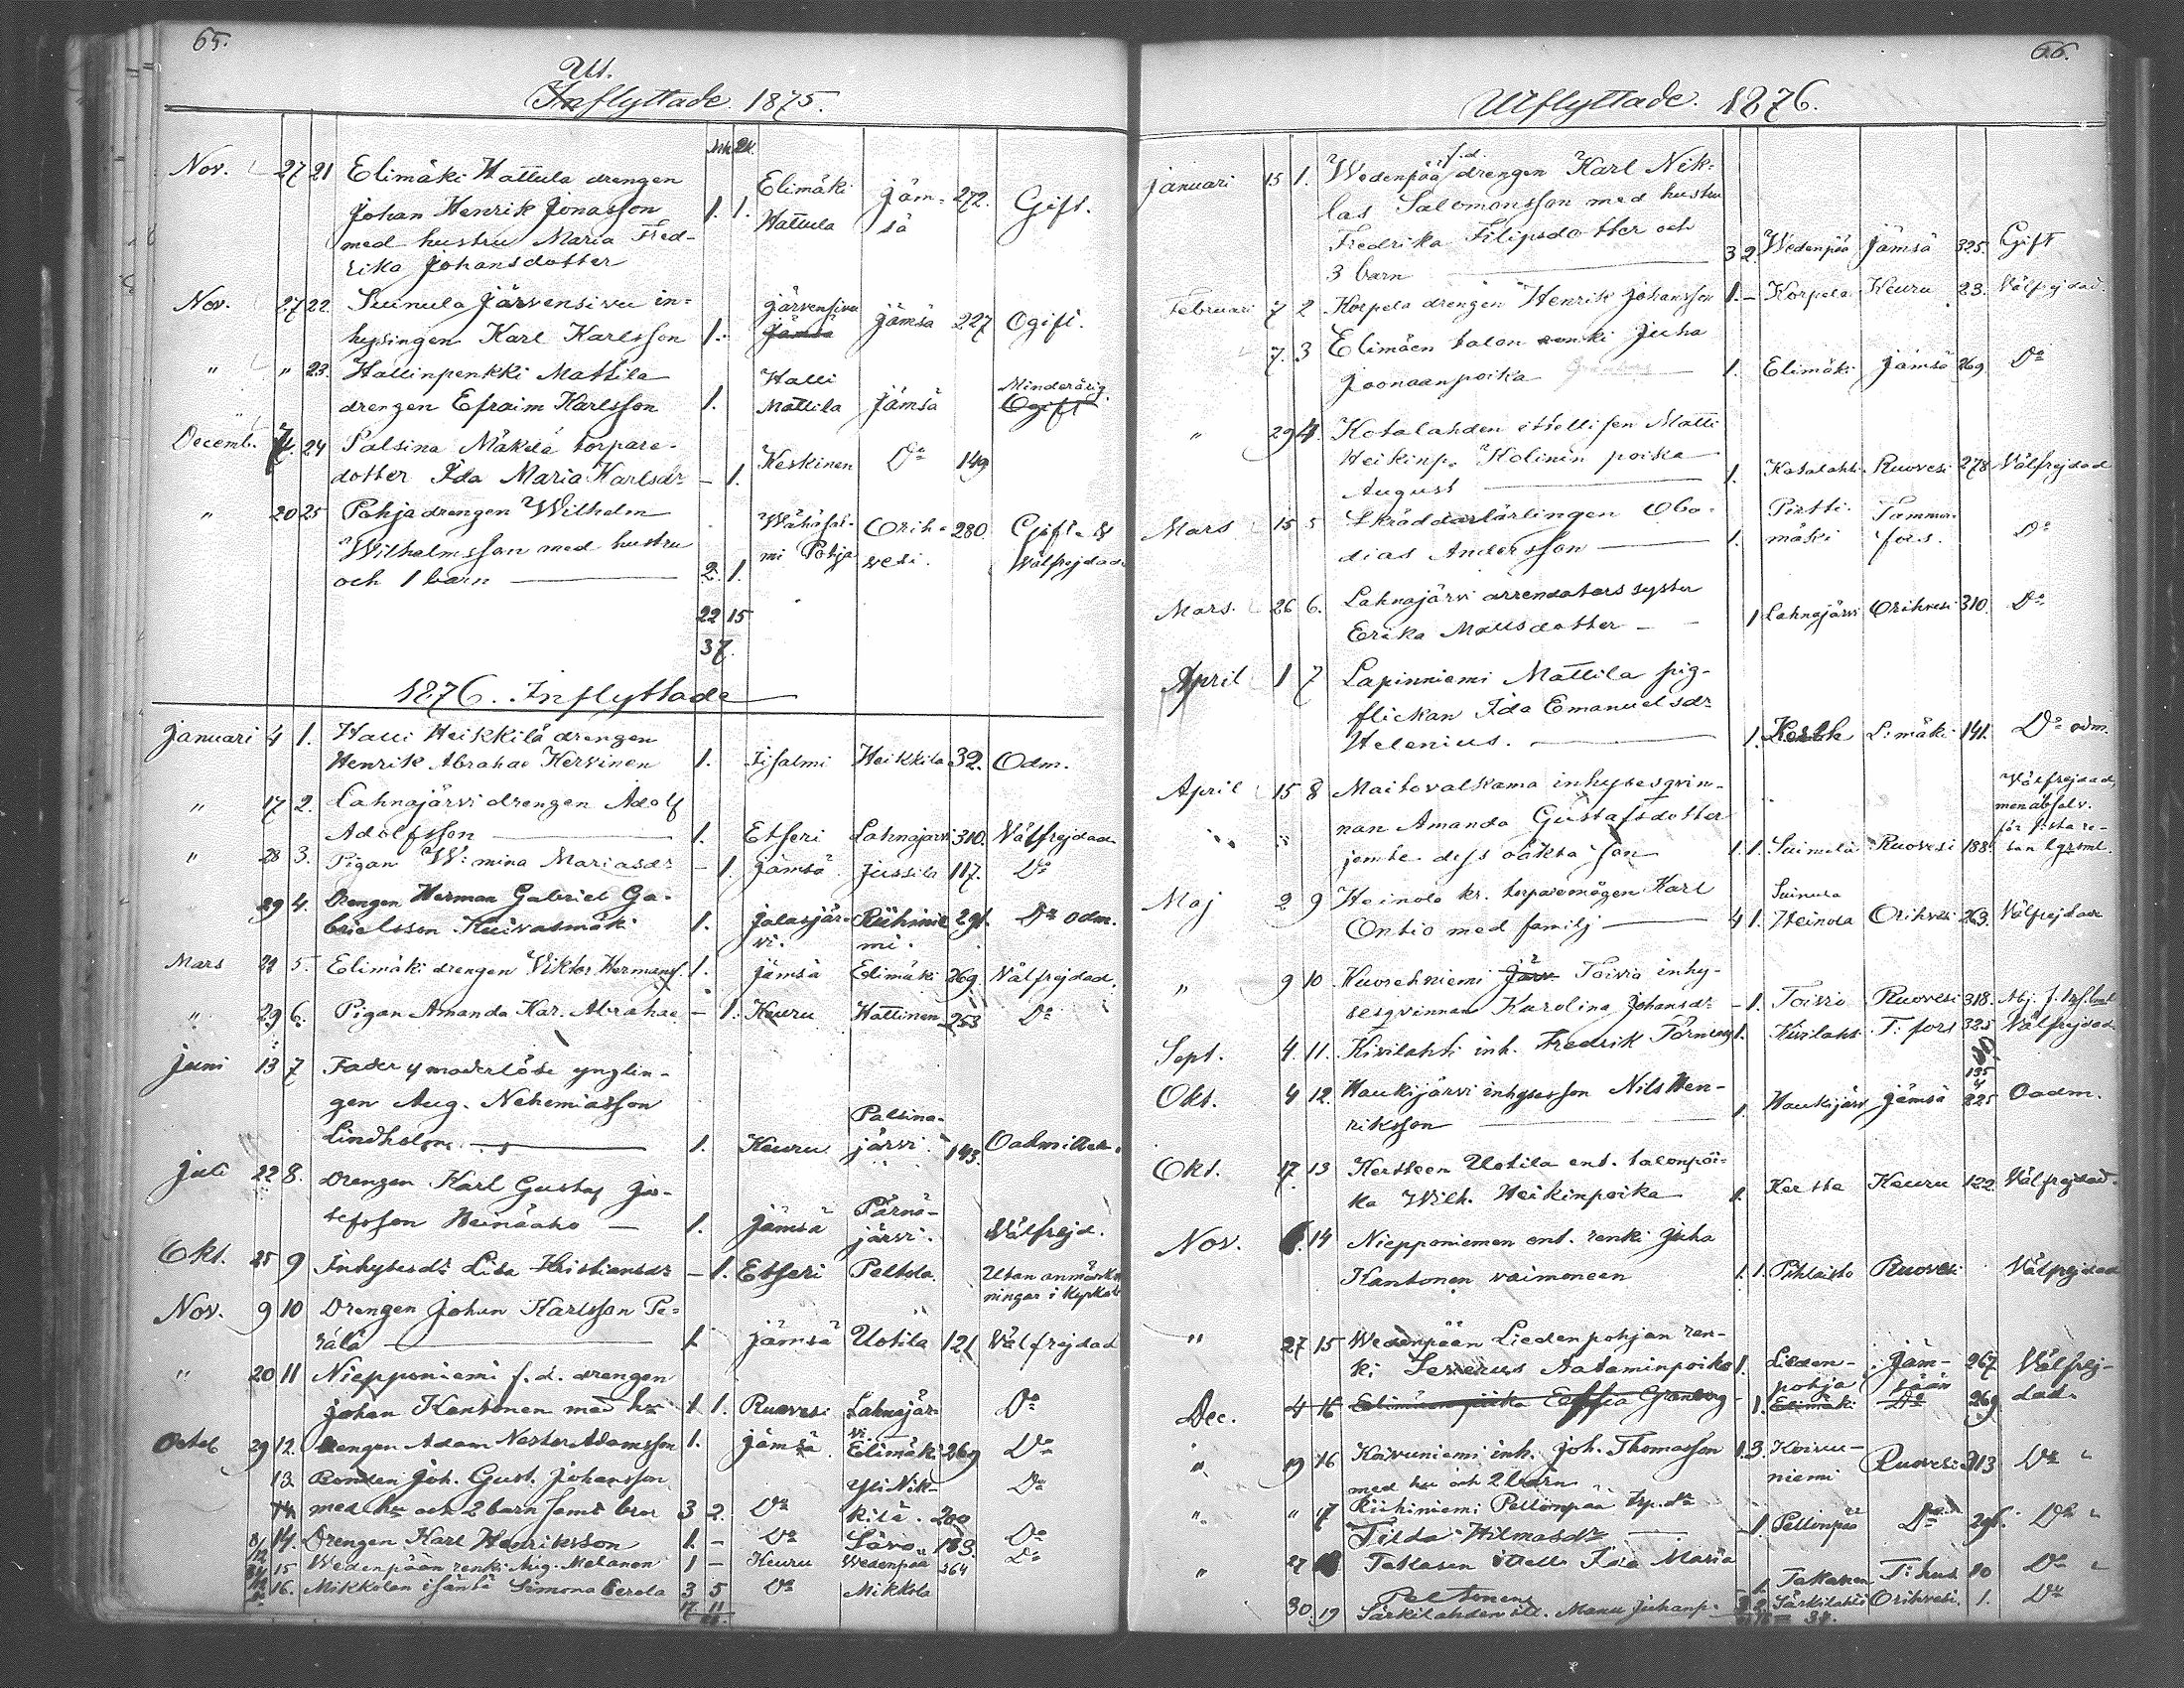 65.
Ut.
Inflyttade. 1875.
Mk. Qk.
Nov. 27 21 Elimäki Hattula drengen
Johan Henrik Jonasson 1. 1. Elimäki Jäm- 272. Gift.
med hustru Maria Fred- Hattula sä
rika Johansdotter
Nov. 27 22 Suinula Järvensivu in- Järvensivu
hysingen Karl Karlsson 1. Jämsä Jämsä 227 Ogift.
" " 23. Hallinpenkki Mattila Halli Minderårig.
drengen Efraim Karlsson 1. Mattila Jämsä Ogift
Decemb. 24 Palsina Mäkelä torpare-
dotter Ida Maria Karlsdr – 1. Keskinen Do 149
" 20 25 Pohja drengen Wilhelm Orih- 280. Gift. &
Wilhelmsson med hustru mi Pohja vesi. Wälfrejdad
och 1 barn 2. 1.
22 15
37.
1876. Inflyttade
Januari 4 1. Halli Heikkilä drengen
Henrik Abraham Kervinen 1. Iisalmi Heikkilä 32. Odm.
" 17 2. Lahnajärvi drengen Adolf
Adolfsson 1. Etseri Lahnajärvi 310. Välfrejdad
" 28 3. Pigan W:mina Mariasdr – 1. Jämsä Jussila 117. Do
29 4. Drengen Herman Gabriel Ga-
brielsson Kuivasmäki 1. Jalasjär- Riihinie 291. Do odm.
vi. mi.
Mars 22 5. Elimäki drengen Viktor Hermanss. 1. Jämsä Elimäki 269. Välfrejdad.
" 29 6. Pigan Amanda Kar. Abrahae – 1. Keuru Hattinen 253 Do
Juni 13 7 Fader & moderlöse ynglin-
gen Aug. Nehemiasson Palsina-
Lindholm 1. Keuru järvi 143.
Juli 22 8. Drengen Karl Gustaf Jo- Pärnä-
sefsson Heinäaho – 1. Jämsä järvi. Välfrejd.
Okt. 25 9 Inhysesdr Lisa Kristiansdr – 1. Etseri Peltola. Utan anmärk-
ningar i
Nov. 9 10 Drengen Johan Karlsson Pe-
rälä 1 Jämsä Uotila 121 Välfrejdad
" 20 11 Niepponiemi f. d. drengen
Johan Kantonen med hu 1 1. Ruovesi Lahnajär- Do
vi
29 12. Drengen Adam Nestor Adamsson 1. Jämsä Elimäki 269 Do
13. Bonden Joh. Gust. Johansson Yli Nik- Do
med hu och 2 barn samt bror 3 2. Do kilä. 200
14. Drengen Karl Henriksson 1. – Do Do
15 Wedenpään renki Aug. Melanen 1 – Keuru Wedenpää 264 Do
16. Mikkolan isäntä Simona Eerola 3 5 Do Mikkola
17 11
66.
Utflyttade. 1876.
Januari 15 1. Wedenpää f.d. drengen Karl Nik-
las Salomonsson med hustru
Fredrika Filipsdotter och
3 barn 3 2. Wedenpää Jämsä 325. Gift
Februari 7 2 Korpela drengen Henrik Johansson 1. – Korpela Keuru 23. Välfrejdad.
7. 3 Elimäen talon renki Juha
Joonaanpoika 1. Elimäki Jämsä 269 Do
" 29 4. Kotalahden itsellisen Matti
Heikinp. Kolinin poika 1. Kotalahti Ruovesi 278 Välfrejdad
August
Mars 15 5 Skräddarlärlingen Oba- Pirtti- Tammer-
dias Andersson 1. mäki fors. Do
Mars. 26 6. Lahnajärvi arrendators syster
Erika Mattsdotter – 1 Lahnajärvi Orihvesi 310. Do
April 1 7 Lapinniemi Mattila pig-
flickan Ida Emanuelsdr
Helenius. 1. L:mäki 141. Do odm.
April 15 8 Maitovalkama inhysesqvin- Välfrejdad,
nan Amanda Gustafsdotter men absolv.
jemte dess oäkta son 1. 1. Suinula Ruovesi 188. för första re-
Maj 2 9 Heinola kr. torparemågen Karl Suinula
Ontio med familj 4 1. Heinola Orihvesi 263. Välfrejdad
" 9 10 Kuorehniemi Järv Toivio inhy-
sesqvinnan Karolina Johansdr – 1. Toivio Ruovesi 318.
Sept. 4. 11. Kivilahti inh. Fredrik Törnberg 1. Kivilahti T:fors 325 Välfrejdad
Okt. 4 12. Haukijärvi inhysesson Nils Hen-
riksson 1. Haukijärvi Jämsä 225 Oadm.
Okt. 17. 13 Kertteen Uotila ent. talonpoi-
ka Wilh. Heikinpoika 1. Kertte Keuru 122. Välfrejdad.
Nov. 14 Niepponiemen ent. renki Juha
Kantonen vaimoneen 1. 1. Pihlaisto Ruovesi Välfrejdad
" 27 15 Wedenpään Liedenpohjan ren-
ki Severus Aataminpoika 1. Lieden- Jäm- 267 Välfrej-
pohja sään dad
Dec. 4 16 Elimäen piika Eeffia Granberg 1. Elimäki Do 269
" 19 16 Koivuniemi inh. Joh. Thomasson 1. 3. Koivu- Ruovesi 313 Do "
med hu och 2 barn niemi
" " 17 Riihiniemi Pellonpää trp. dr
Tilda Hilmasdr – 1 Pellonpää Do 291. Do "
" 27 18 Takasen itsell. Ida Maria
Peltonen 1. Takanen T:hus 10 Do "
30. 19 Särkilahden itl. Manu Juhanp. Särkilahti Orihvesi. 1. Do